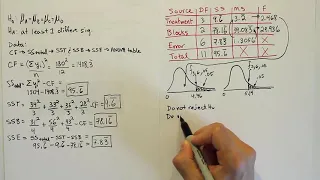 H₀: μA = μB = μC = μD
Ha: at least 1 differs sig.
Data:
CF → SStotal → SST → SSB → SSE → ANOVA table
CF = (Σyi)² / 12 = 130² / 12 = 1408.3
1504 - 1408.3 = 95.6
SST = 34²/3 + 33²/3 + 35²/3 + 28²/3 - CF = 9.6
SSB = 31²/4 + 56²/4 + 43²/4 - CF = 78.16
SSE = SStotal - SST - SSB =
95.6 - 9.6 - 78.16 = 7.83
Source DF SS MS F
Treatment 3 9.6 3.2 2.468
Blocks 2 78.16 39.083
Error 6 7.83 1.3056
Total 11 95.6
0 4.76
0
Do not reject H₀
Do